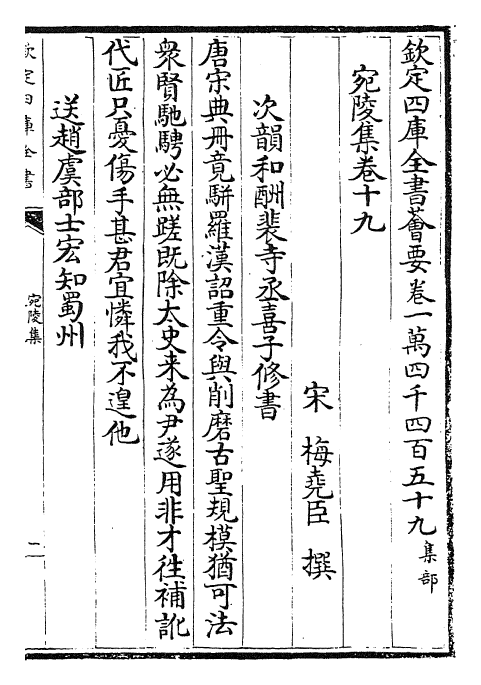 欽定四庫全書薈要卷一萬四千四百五十九集部
宛陵集卷十九
宋 梅堯臣 撰
次韻和酬裴寺丞喜子修書
唐宋典冊竟駢羅漢詔重令與削磨古聖規模猶可法
衆賢馳騁必無蹉既除太史来為尹遂用非才徃補訛
代匠只憂傷手甚君宜憐我不遑他
送趙虞部士宏知蜀州
欽定四庫全書
宛陵集
二